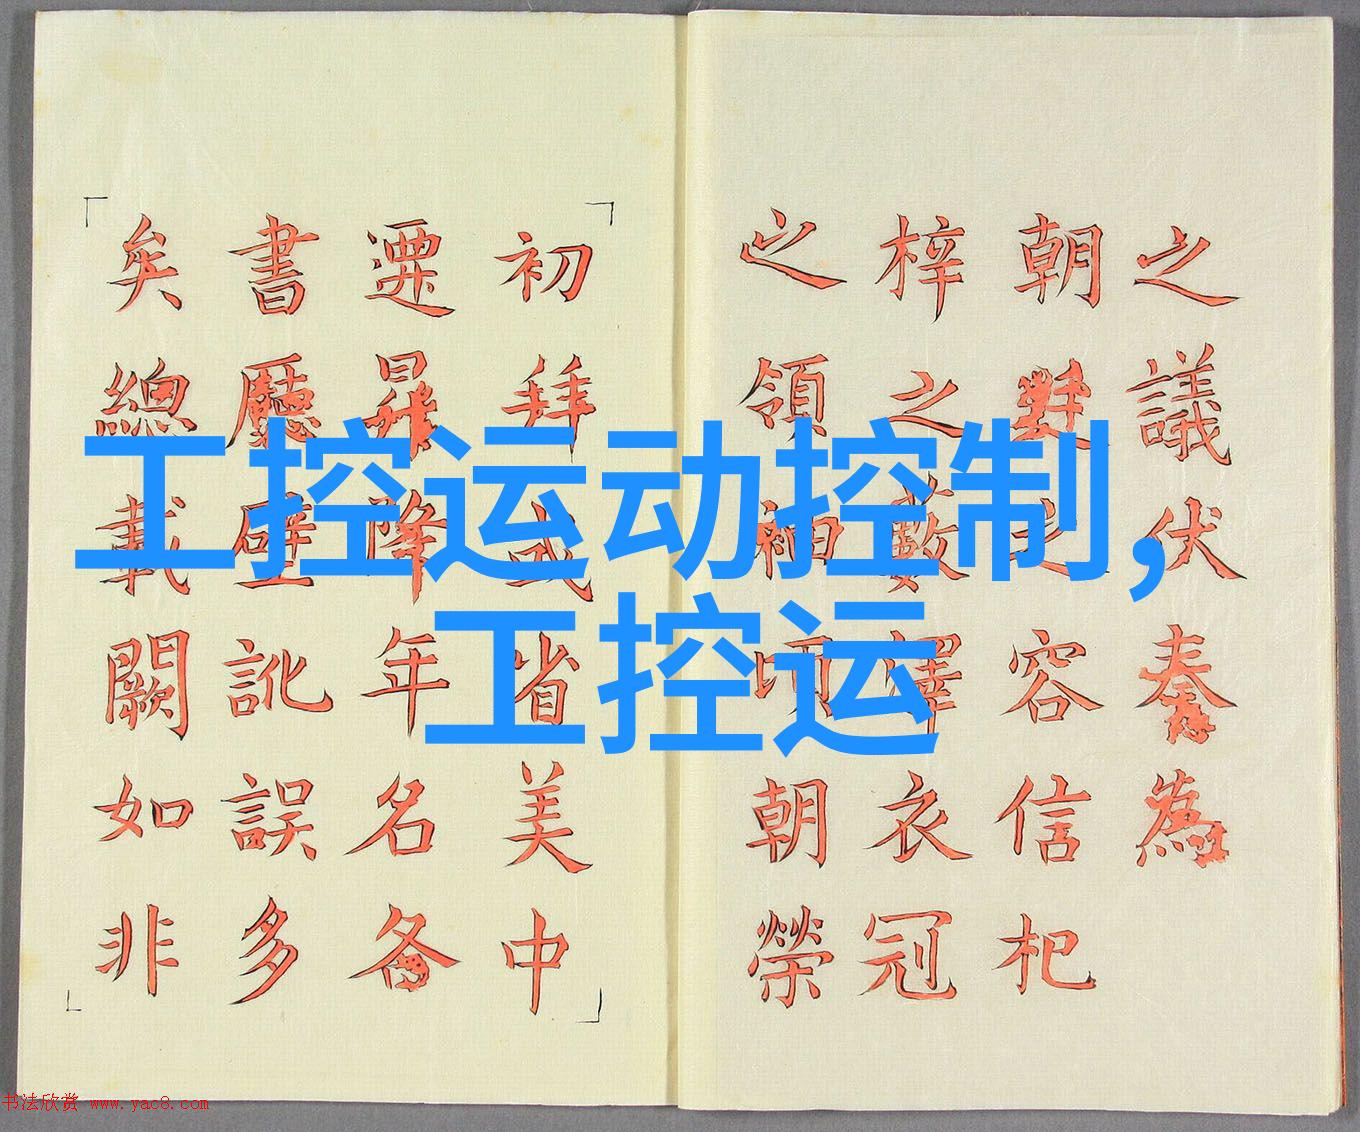 工控运动控制，
工控运
之議伏奏為
朝之容信杞
梓之藪澤衣冠
之領袖朝榮
初拜或省美中
遷昇降年名
書廳壁訛誤多
矣總載闕如非
书法欣赏 www.yac8.com